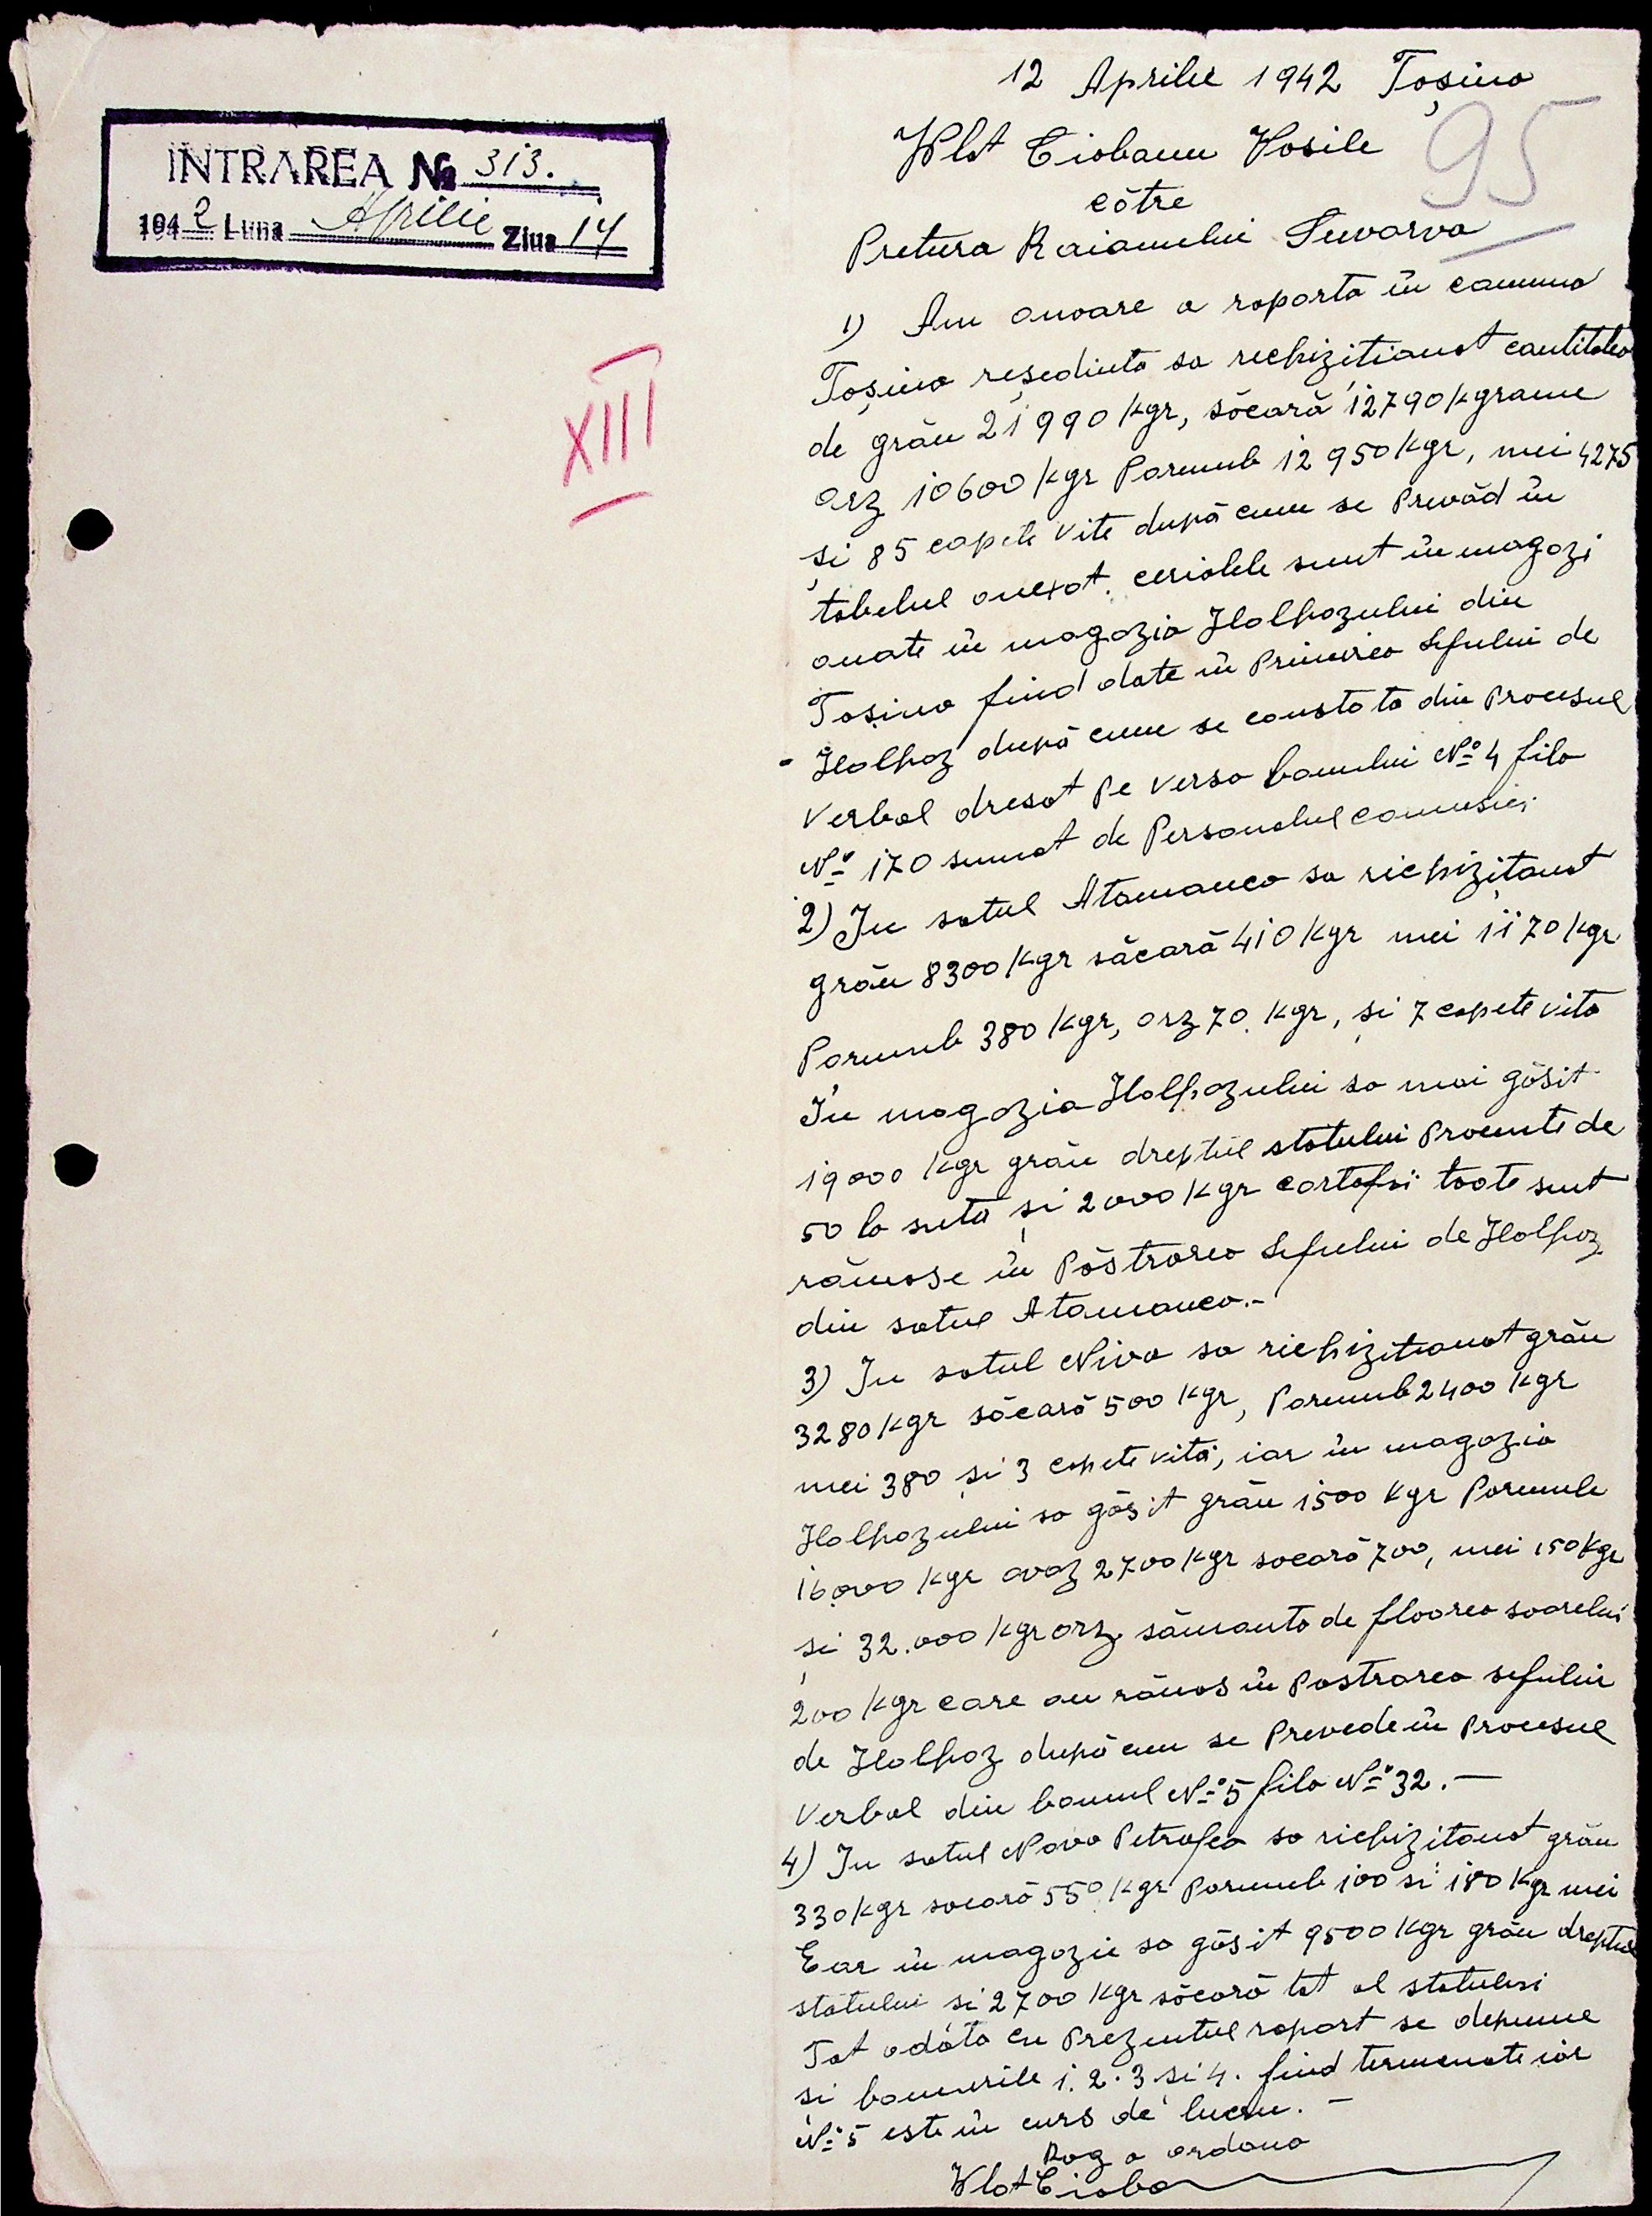 INTRAREA № 313.
1942 Luna Aprilie Ziua 14
XIII
95
12 Aprilie 1942 Toșino
Plot Ciobanu Vasile
cótre
Pretura Raionului Suvorva
1) Am onoare a raporta în comuna
Toșino reședinta sa rechizitionat cantitatea
de grâu 21990 kgr, săcară 12790 kgrame
orz 10600 kgr Porumb 12950 kgr, mei 4275
și 85 capete vite după cum se Prevăd în
tabelul anexat. cerialele sunt în magazi
onate în magazia Holhozului din
Toșino fiind date în Primirea Șefului de
Holhoz după cum se constata din Procesul
Verbal dresat pe verso bonului № 4 fila
№ 170 semnat de Personalul comisiei
2) In satul Atamanca sa richizitonat
grâu 8300 kgr săcară 410 kgr mei 1170 kgr
Porumb 380 kgr, orz 70 kgr, și 7 capete vita
În magazia Holhozului sa mai găsit
19000 kgr grâu dreptul statului Procente de
50 la suta și 2000 kgr cartofi toate sunt
rămase în Păstrarea Șefului de Holhoz
din satul Atamanca.-
3) In satul Niva sa richizitionat grâu
3280 kgr săcară 500 kgr, Porumb 2400 kgr
mei 380 și 3 capete vita, iar în magazia
Holhozului sa găsit grâu 1500 kgr Porumb
16000 kgr ovaz 2700 kgr socară 700, mei 150 kgr
și 32.000 kgr orz sămanta de floarea soarelui
200 kgr care au rămas în Pastrarea sefului
de Holhoz după cum se Prevede în Procesul
Verbal din bonul № 5 fila № 32.—
4) In satul Nova Petrofca sa richizitonat grâu
330 kgr socară 550 kgr Porumb 100 si 180 kgr mei
Ear in magazie sa găsit 9500 kgr grâu dreptul
statului si 2700 kgr săcară tot al statului
Tot odáta cu Prezentul raport se depune
si bonurile 1. 2. 3 si 4. fiind terminate iar
№ 5 este în curs de lucru. —
Rog a ordona
Plot Cioba